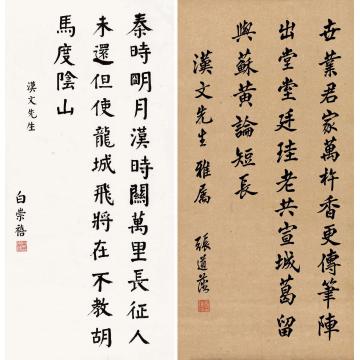 世業君家萬杵香更傳筆陣
出堂堂廷珪老共宣城葛留
與蘇黃論短長
漢文先生雅屬
張道藩
秦時明月漢時關萬里長征人
未還但使龍城飛將在不教胡
馬度陰山
漢文先生
白崇禧